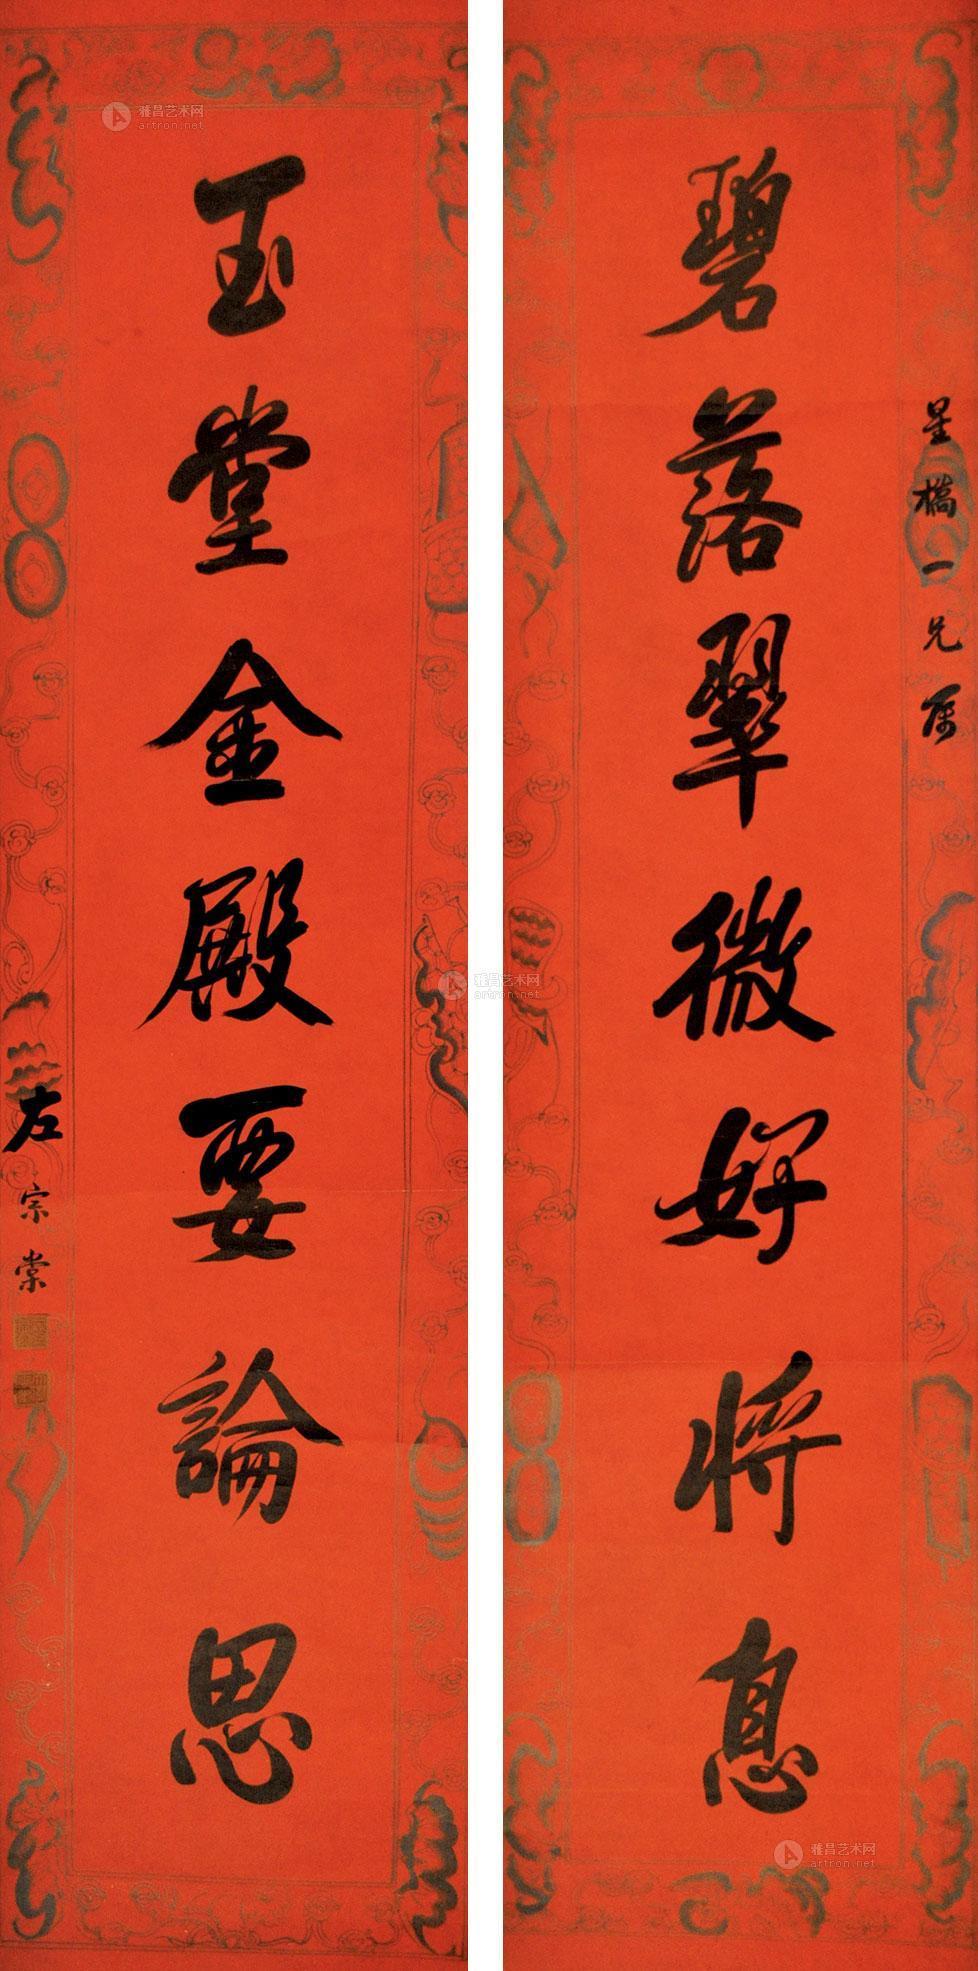 星橋一兄属
碧落翠微好將息
玉堂金殿要論思
左宗棠
雅昌艺术网
artron.net
雅昌艺术网
artron.net
雅昌艺术网
artron.net